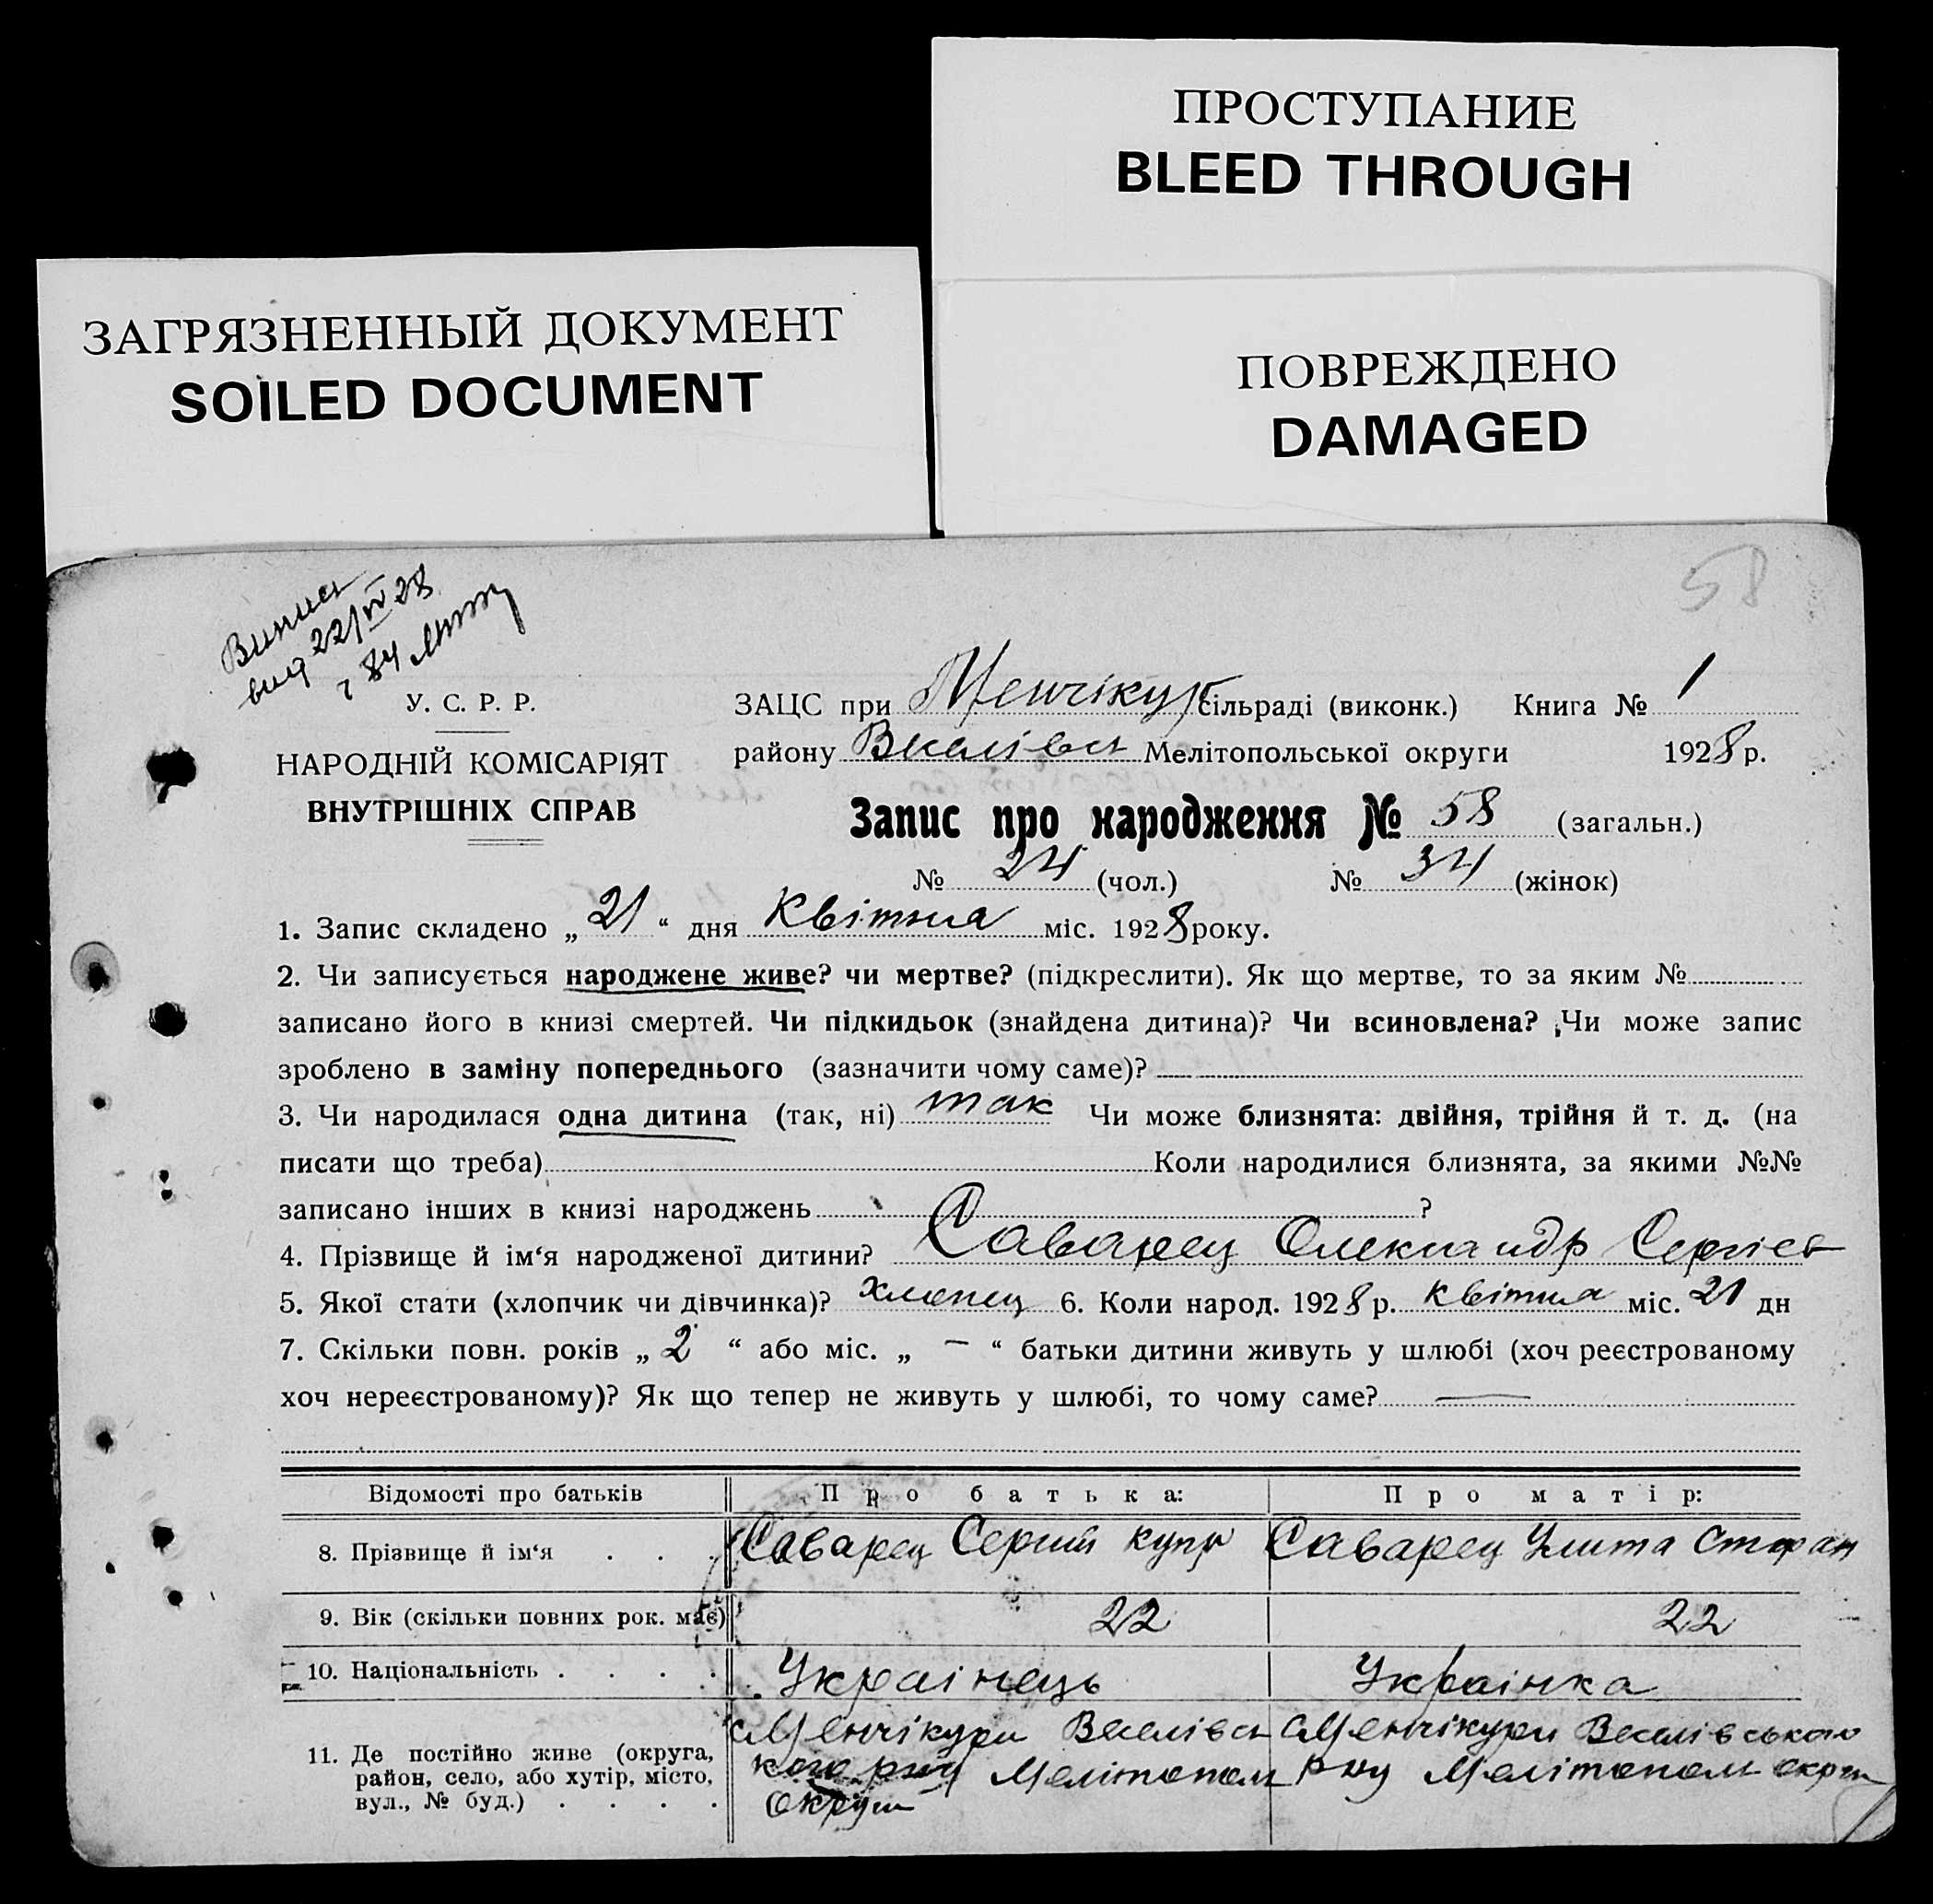 ПРОСТУПАНИЕ
BLEED THROUGH
ЗАГРЯЗНЕННЫЙ ДОКУМЕНТ
SOILED DOCUMENT
ПОВРЕЖДЕНО
DAMAGED
58
Випись
вид 22/IV 28
84
У. С. Р. Р.
ЗАЦС при Менчікур сільраді (виконк.) Книга № 1
НАРОДНІЙ КОМІСАРІЯТ
ВНУТРІШНІХ СПРАВ
району Веселівсь Мелітопольської округи 1928 р.
Запис про народження № 58 (загальн.)
№ 24 (чол.) № 34 (жінок)
1. Запис складено „ 21 “ дня Квітня міс. 1928 року.
2. Чи записується народжене живе? чи мертве? (підкреслити). Як що мертве, то за яким №
записано його в книзі смертей. Чи підкидьок (знайдена дитина)? Чи всиновлена? Чи може запис
зроблено в заміну попереднього (зазначити чому саме)?
3. Чи народилася одна дитина (так, ні) так Чи може близнята: двійня, трійня й т. д. (на
писати що треба) Коли народилися близнята, за якими №№
записано інших в книзі народжень ?
4. Прізвище й ім‘я народженої дитини? Саварец Олександр Сергієв
5. Якої стати (хлопчик чи дівчинка)? хлопец 6. Коли народ. 1928 р. квітня міс. 21 дн
7. Скільки повн. років „ 2 “ або міс. „ — “ батьки дитини живуть у шлюбі (хоч реєстрованому
хоч нереєстрованому)? Як що тепер не живуть у шлюбі, то чому саме? —
Відомості про батьків Про батька: Про матір:
8. Прізвище й ім‘я . . . Саварец Сергий купр Саварец Улита Стефан
9. Вік (скільки повних рок. має) 22 22
10. Національність . . . . Украінець Украінка
11. Де постійно живе (округа, район, село, або хутір, місто, вул., № буд.) . . . .
Менчікури Веселівсь
кого рну Мелітопол
Округи
Менчікури Веселівського
Рну Мелітополь округи